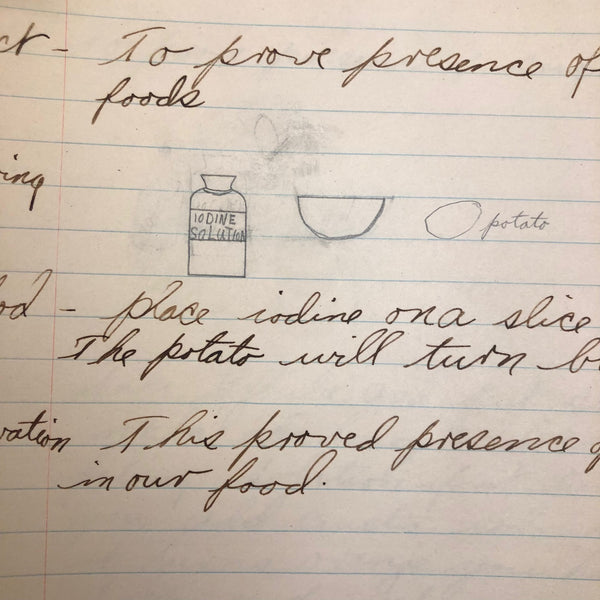 ct - To prove presence of
foods
ing
IODINE
SOLUTION
potato
od - place iodine on a slice
The potato will turn b
vation This proved presence o
in our food.